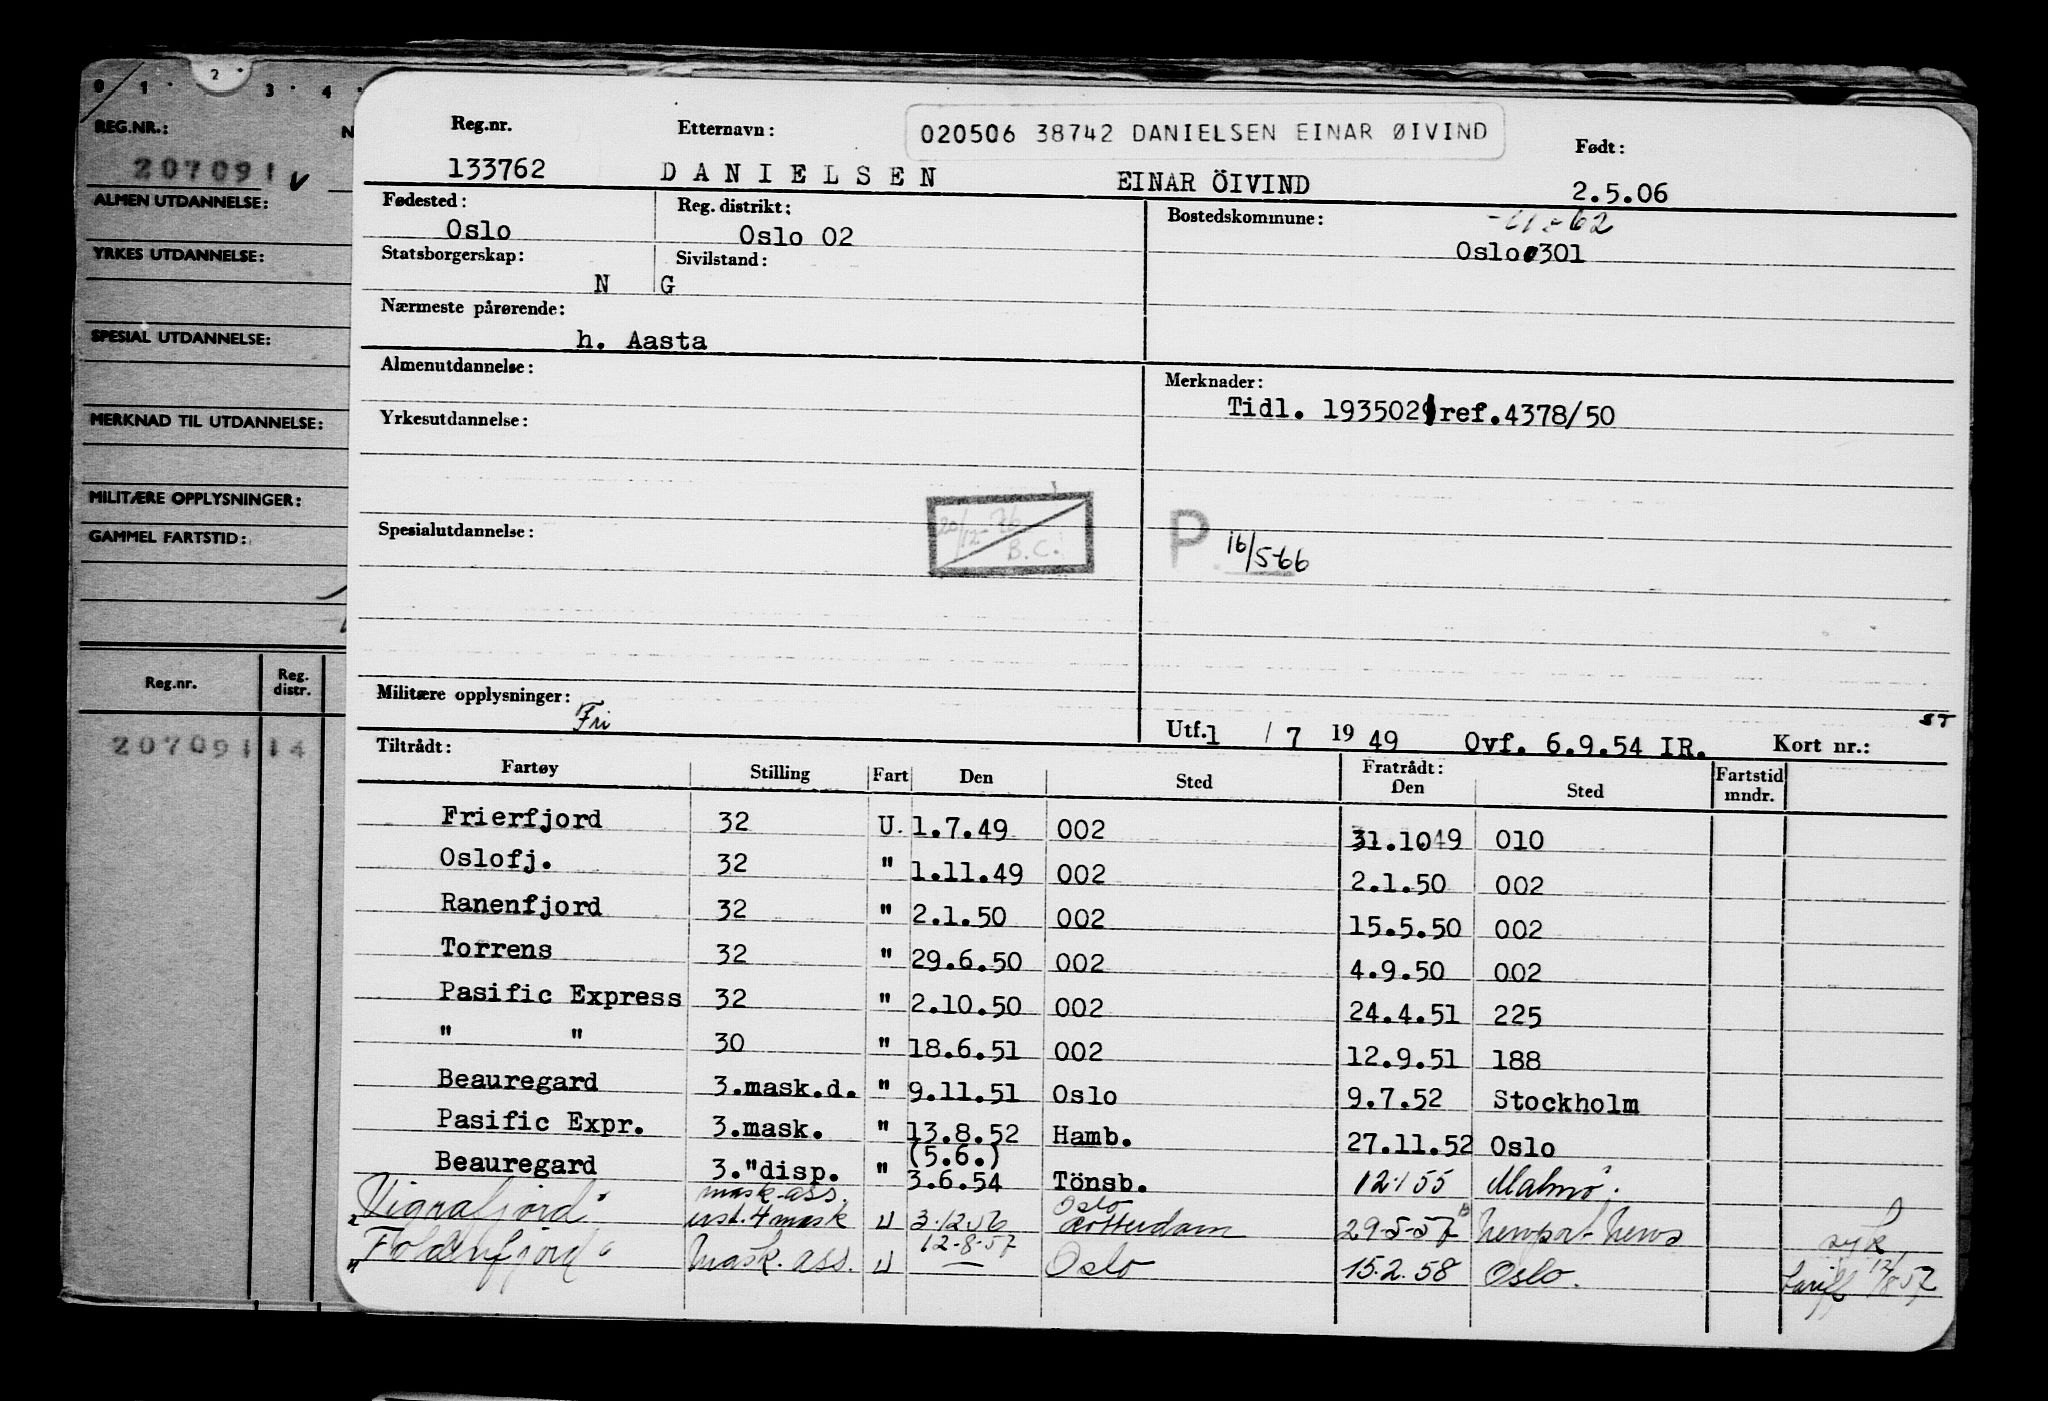 0 1 · 2 · 3 · 4 ·
REG.NR.: N
207091 v
ALMEN UTDANNELSE:
YRKES UTDANNELSE:
SPESIAL UTDANNELSE:
MERKNAD TIL UTDANNELSE:
MILITÆRE OPPLYSNINGER:
GAMMEL FARTSTID:
Reg.nr. Reg. distr.
207091 14
Reg.nr. Etternavn: 020506 38742 DANIELSEN EINAR ØIVIND Født:
133762 DANIELSEN EINAR ÖIVIND 2.5.06
Fødested: Reg. distrikt: Bostedskommune: -11.-62
Oslo Oslo 02 Oslo 301
Statsborgerskap: Sivilstand:
N G
Nærmeste pårørende:
h. Aasta
Almenutdannelse: Merknader:
Tidl. 193502 ref.4378/50
Yrkesutdannelse:
Spesialutdannelse: 20/12-76 B.C. P 16/5-66
Militære opplysninger: Fri
ST
Utf. 1 / 7 19 49 Ovf. 6.9.54 IR. Kort nr.:
Tiltrådt: Fratrådt:
Fartøy Stilling Fart Den Sted Den Sted Fartstid mndr.
Frierfjord 32 U. 1.7.49 002 31.10 49 010
Oslofj. 32 " 1.11.49 002 2.1.50 002
Ranenfjord 32 " 2.1.50 002 15.5.50 002
Torrens 32 " 29.6.50 002 4.9.50 002
Pasific Express 32 " 2.10.50 002 24.4.51 225
" " 30 " 18.6.51 002 12.9.51 188
Beauregard 3.mask.d. " 9.11.51 Oslo 9.7.52 Stockholm
Pasific Expr. 3.mask. " 13.8.52 Hamb. 27.11.52 Oslo
(5.6.)
Beauregard 3."disp. " 3.6.54 Tönsb. 12.1 55 Malmö.
mask-ass. Oslo
Vignafjord 4 mask u 3.12.56 Rotterdam 29-5-57 Newport News syk
12-8-57
Foldenfjord Mask. ass. u — Oslo 15.2.58 Oslo. tariff 12/8 57